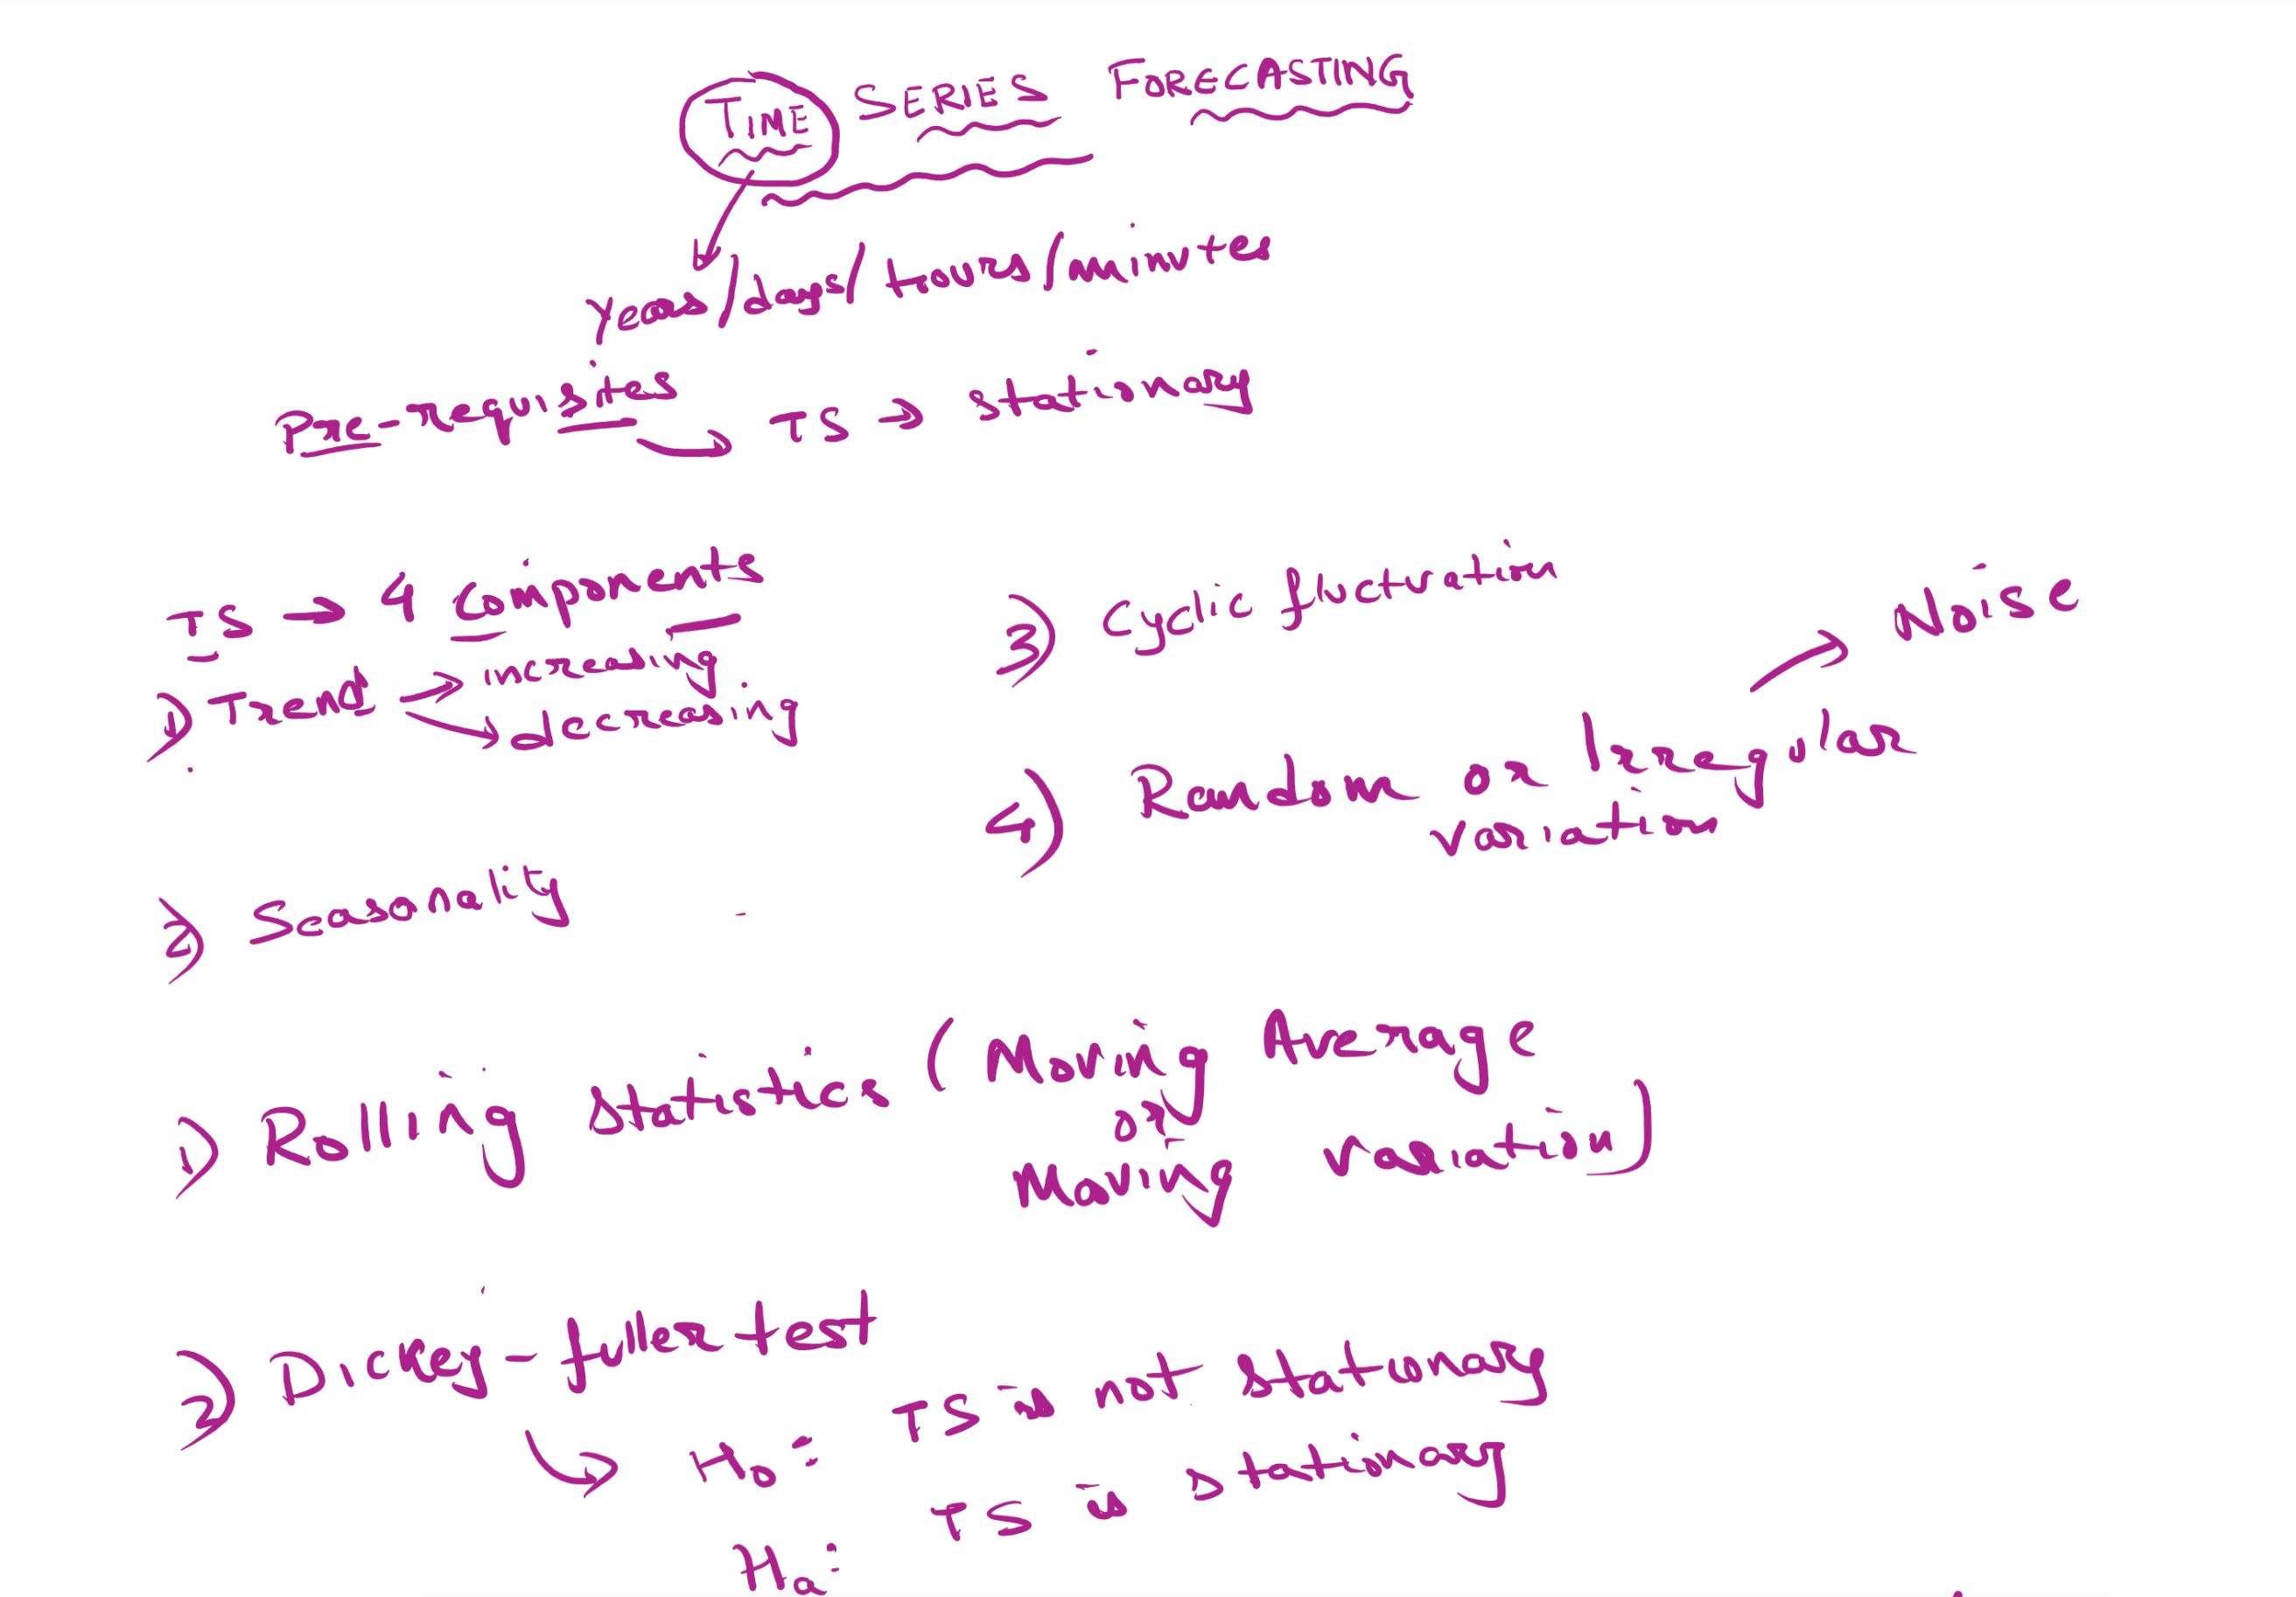 TIME SERIES FORECASTING
Years/days/hours/minutes
Pre-requisites → TS → stationary
TS → 4 Components
1) Trend → increasing
→ decreasing
2) Seasonality
3) Cyclic fluctuation
4) Random or Irregular → Noise
variation
1) Rolling statistics (Moving Average
or
Moving variation)
2) Dickey-fuller test
→ H0: TS is not stationary
Ha: TS is stationary